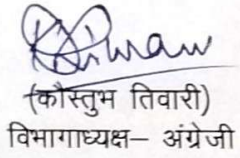 (कौस्तुभ तिवारी)
विभागाध्यक्ष– अंग्रेजी